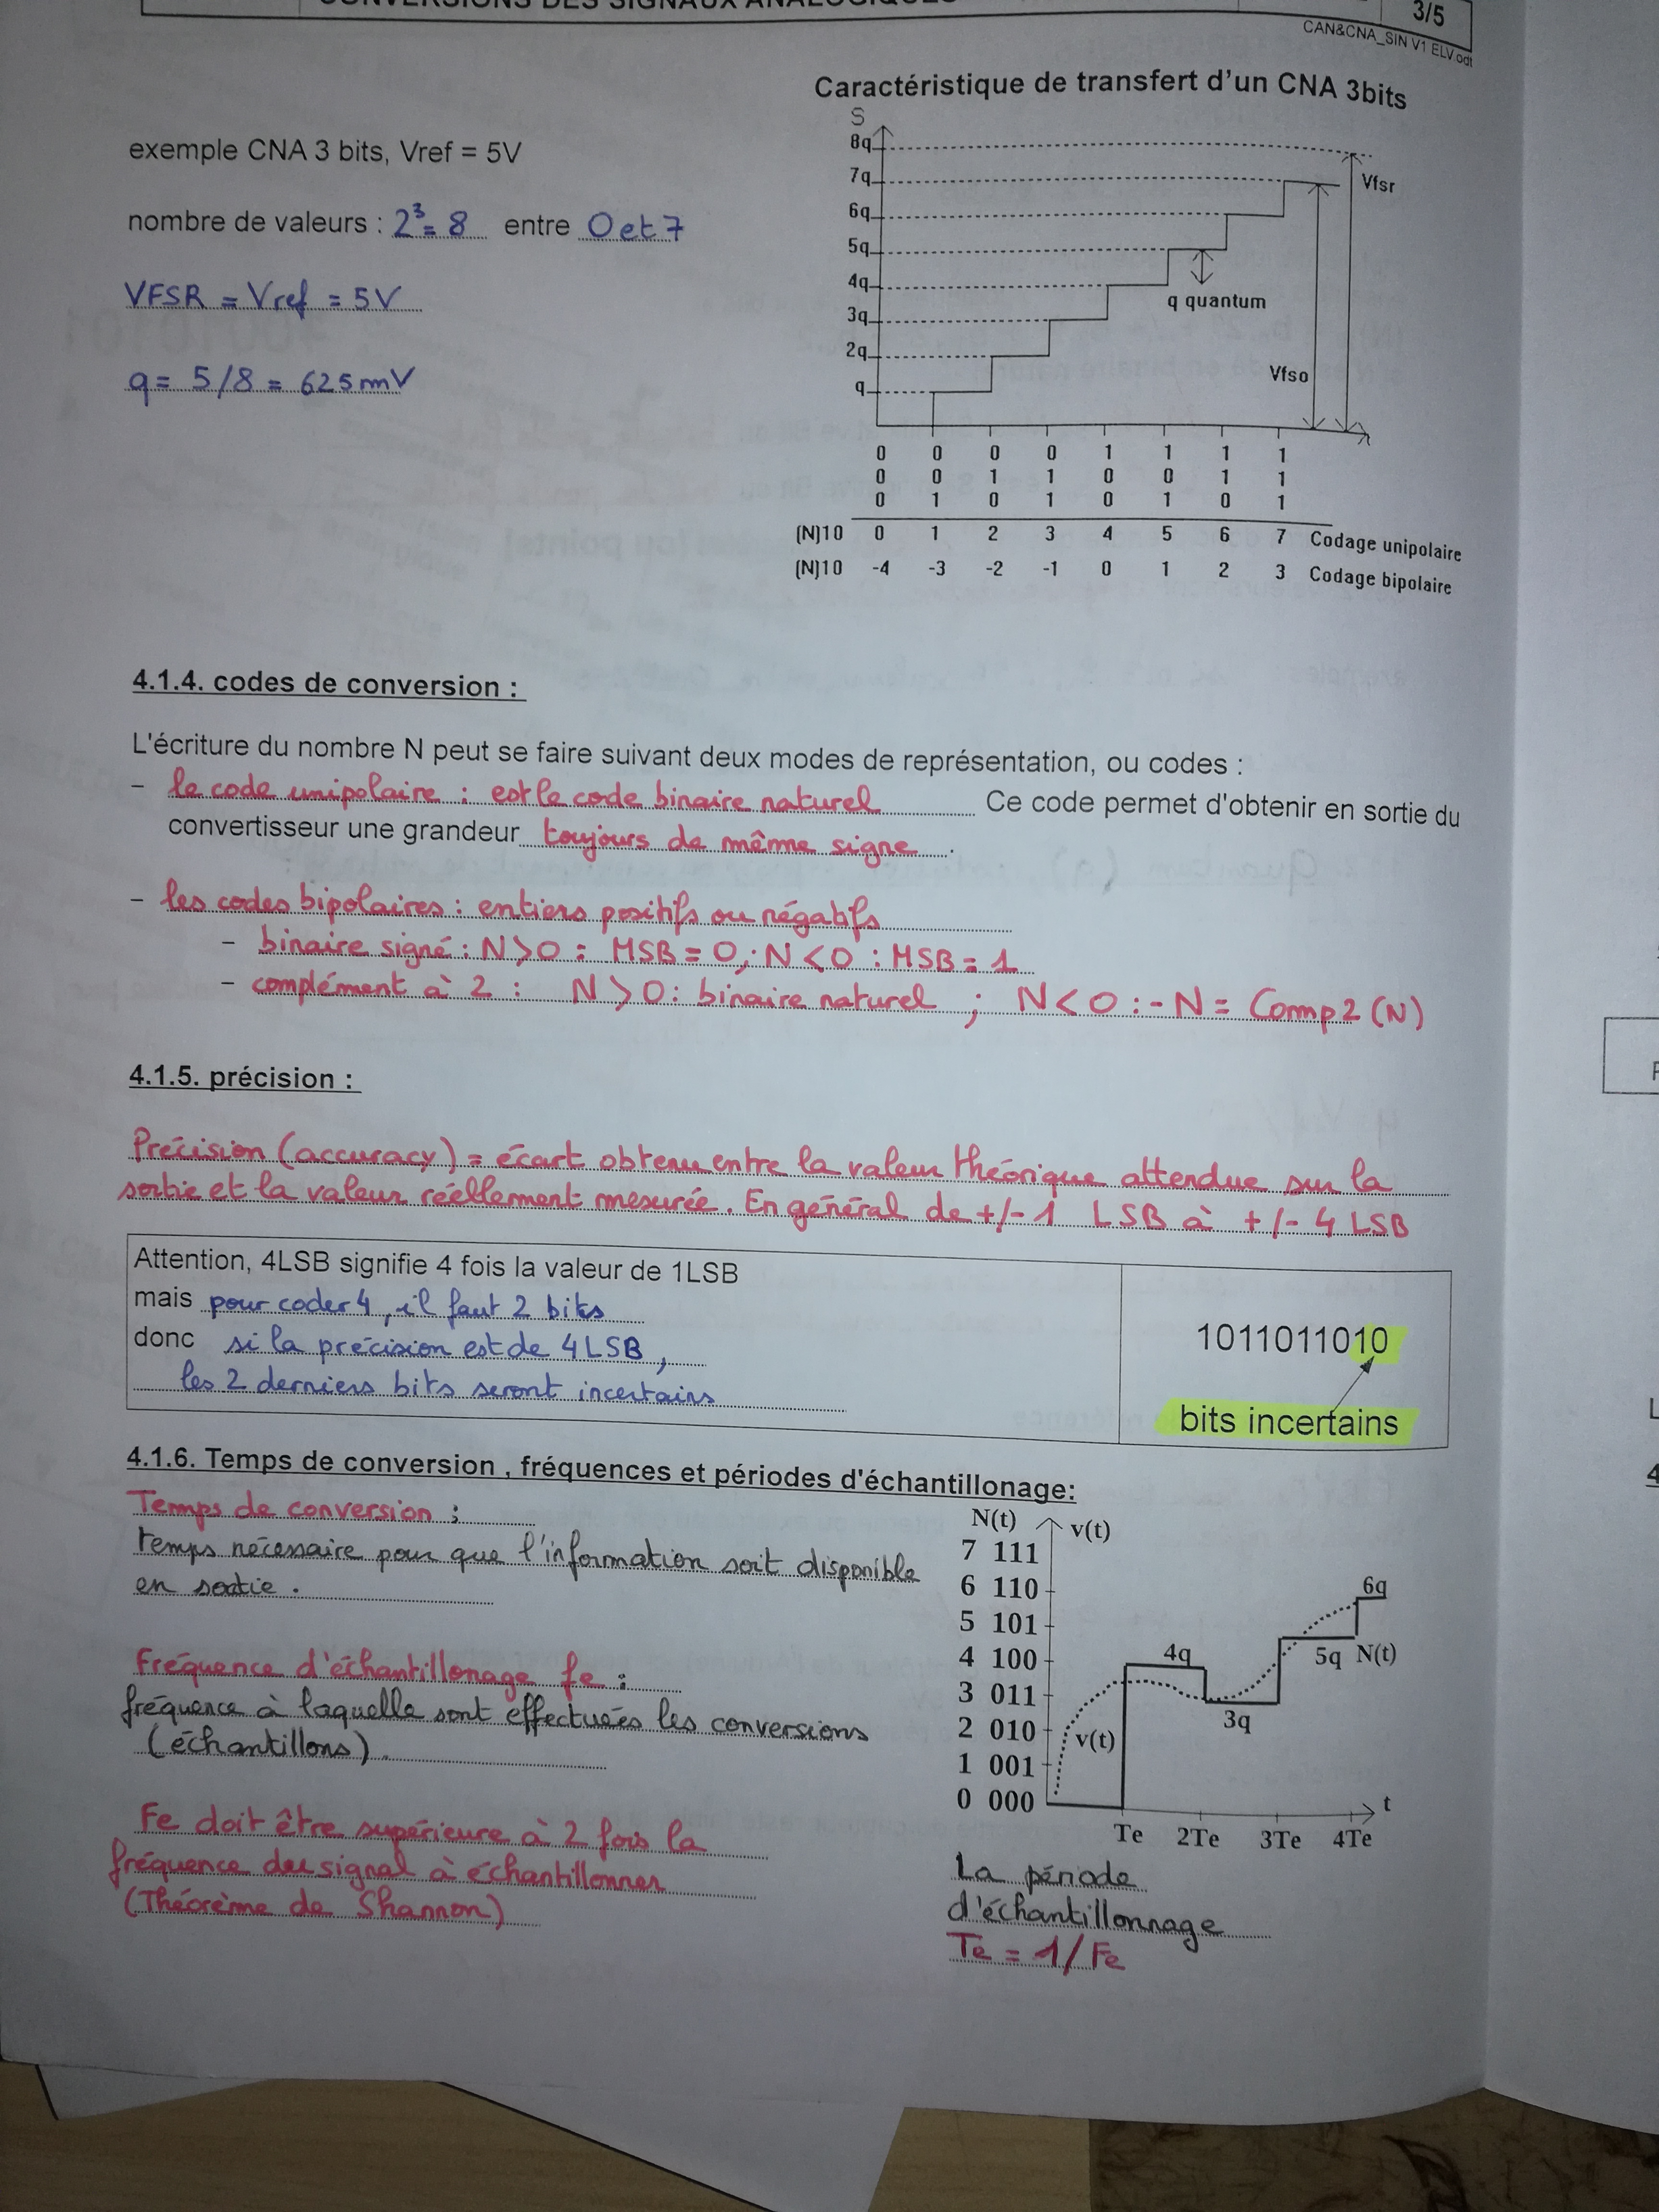 CONVERSIONS DES SIGNAUX ANALOGIQUES
3/5
CAN&CNA_SIN V1 ELV.odt
Caractéristique de transfert d'un CNA 3bits
exemple CNA 3 bits, Vref = 5V
nombre de valeurs : 2³= 8 entre 0 et 7
VFSR = Vref = 5V
q = 5/8 = 625mV
S
8q
7q
6q
5q
4q
3q
2q
q
Vfsr
q quantum
Vfso
0 0 0 0 1 1 1 1
0 0 1 1 0 0 1 1
0 1 0 1 0 1 0 1
(N)10 0 1 2 3 4 5 6 7 Codage unipolaire
(N)10 -4 -3 -2 -1 0 1 2 3 Codage bipolaire
4.1.4. codes de conversion :
L'écriture du nombre N peut se faire suivant deux modes de représentation, ou codes :
- le code unipolaire : est le code binaire naturel Ce code permet d'obtenir en sortie du
convertisseur une grandeur toujours de même signe.
- les codes bipolaires : entiers positifs ou négatifs
- binaire signé : N>0 : MSB = 0; N<0 : MSB = 1
- complément à 2 : N>0 : binaire naturel ; N<0 : -N = Comp2 (N)
4.1.5. précision :
Précision (accuracy) = écart obtenu entre la valeur théorique attendue sur la
sortie et la valeur réellement mesurée. En général de +/- 1 LSB à +/- 4 LSB
Attention, 4LSB signifie 4 fois la valeur de 1LSB
mais pour coder 4, il faut 2 bits
donc si la précision est de 4LSB,
les 2 derniers bits seront incertains
1011011010
bits incertains
4.1.6. Temps de conversion , fréquences et périodes d'échantillonage:
Temps de conversion :
temps nécessaire pour que l'information soit disponible
en sortie.
Fréquence d'échantillonage fe :
fréquence à laquelle sont effectuées les conversions
(échantillons).
Fe doit être supérieure à 2 fois la
fréquence du signal à échantillonner
(Théorème de Shannon)
N(t) v(t)
7 111
6 110
5 101
4 100
3 011
2 010
1 001
0 000
v(t)
4q
3q
5q N(t)
6q
t
Te 2Te 3Te 4Te
La période
d'échantillonnage
Te = 1/Fe